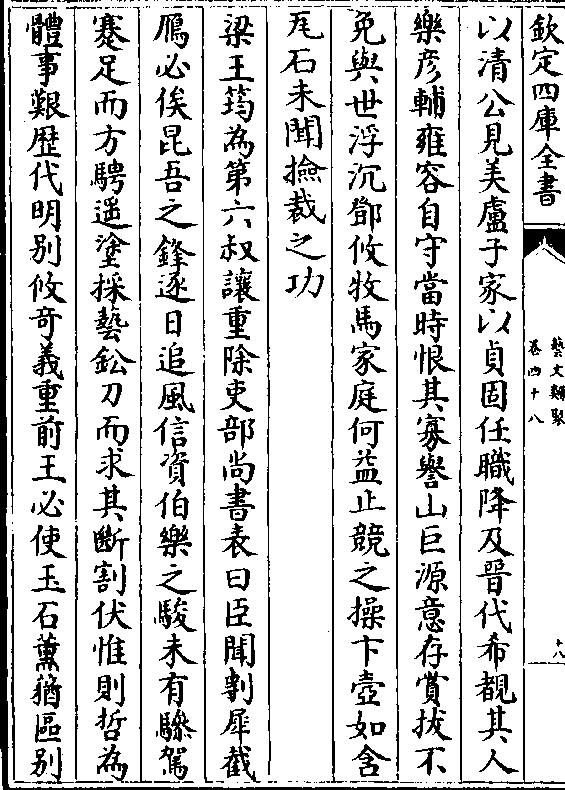 欽定四庫全書
藝文類聚
卷四十八
十八
以清公見美盧子家以貞固任職降及晉代希覩其人
樂彦輔雍容自守當時恨其寡譽山巨源意存賞拔不
免與世浮沉鄧攸牧馬家庭何益止競之操卞壼如含
瓦石未聞撿裁之功
梁王筠為第六叔讓重除吏部尚書表曰臣聞剸犀截
鴈必俟昆吾之鋒逐日追風信資伯樂之駿未有驂駕
蹇足而方騁遥塗採藝鈆刀而求其斷割伏惟則哲為
體事艱歴代明别攸竒義重前王必使玉石薰蕕區别